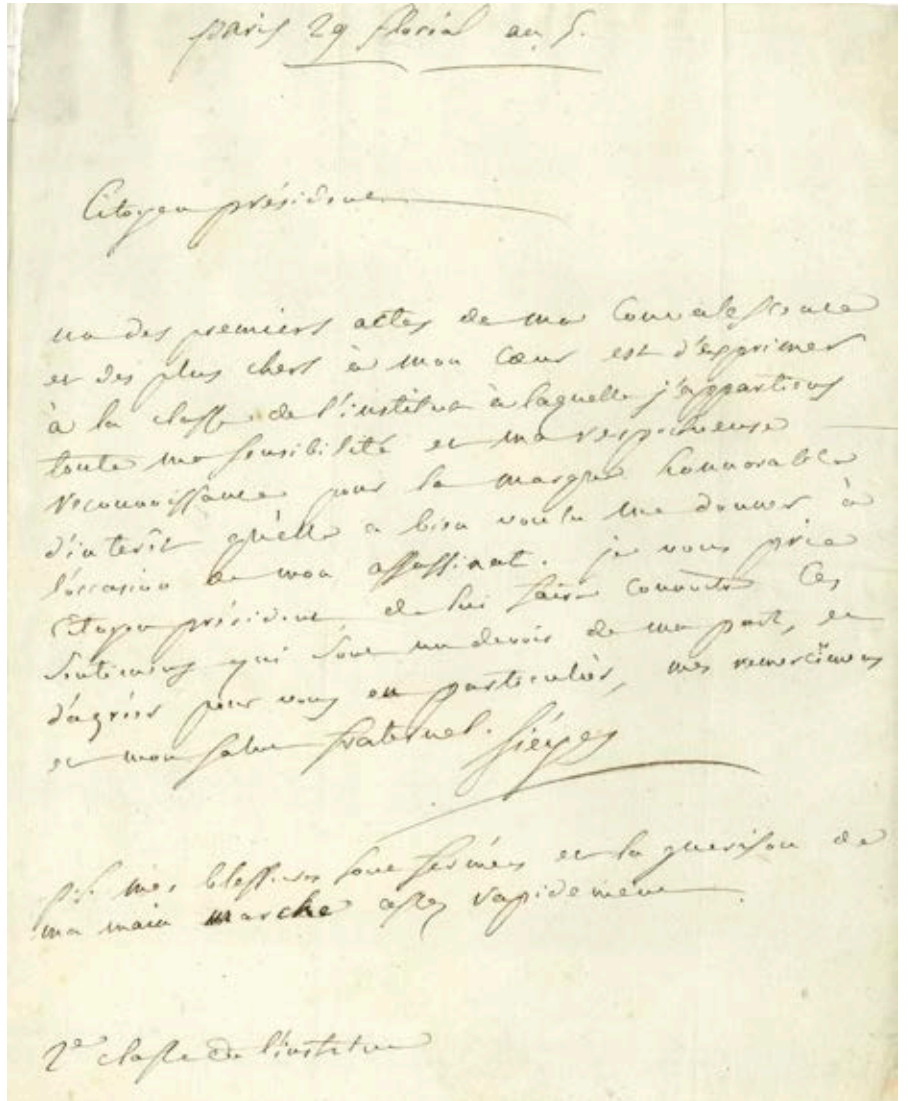 paris 29 floréal an 5.
Citoyen président
un des premiers actes de ma Convalescence
et des plus chers à mon cœur est d'exprimer
à la classe de l'institut à laquelle j'appartiens
toute ma sensibilité et ma respectueuse
reconnoissance pour la marque honnorable
d'interêt qu'elle a bien voulu me donner à
l'occasion de mon assassinat. je vous prie
Citoyen président, de lui faire connoitre ces
sentimens qui sont un devoir de ma part, et
d'agréer pour vous en particulier, mes remercîmens
et mon salut fraternel. Siéyes
p.s. mes blessures sont fermées et la guerison de
ma main marche assez rapidement
2e classe de l'institut